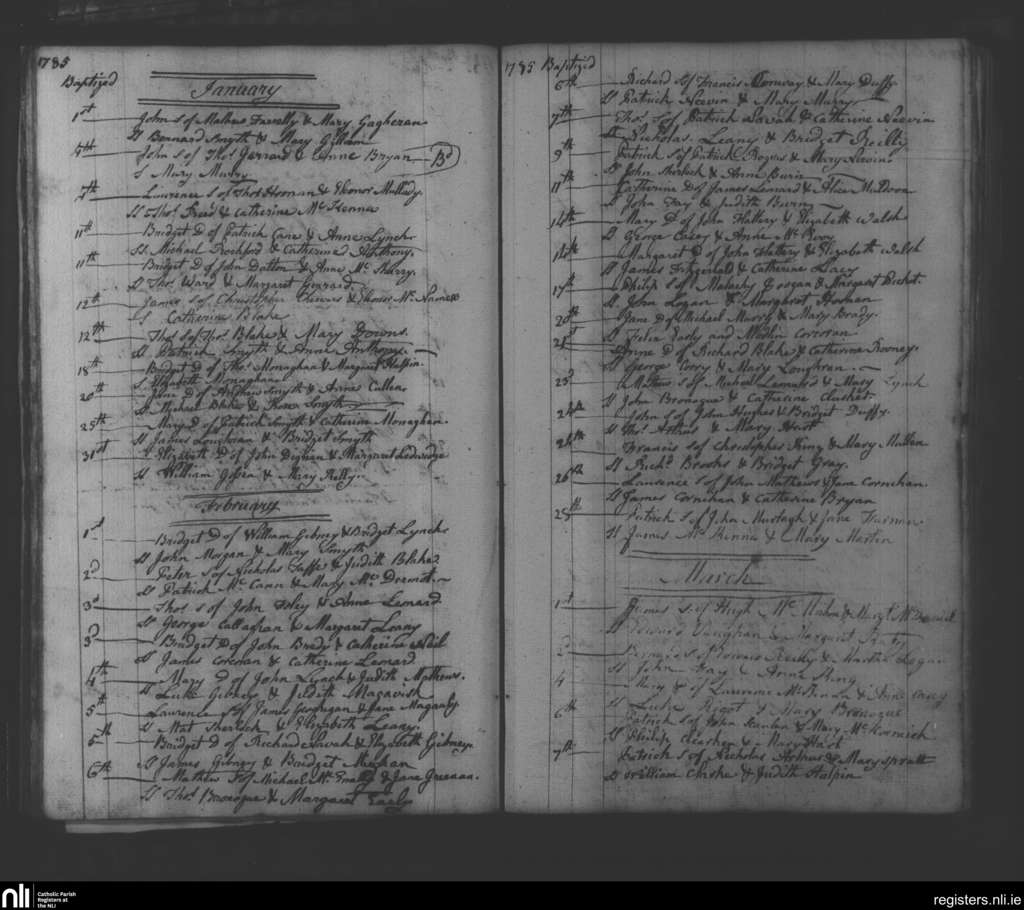 1785
Baptized
January
1st John s of Mathew Farrelly & Mary Gagheran
Sp Bernard Smyth & Mary Gillain
4th John s of Thos Gerrard & Anne Bryan Bd
S Mary Murry
7th Laurence s of Thos Hornan & Elenor Mullady
Sp Thos Freed & Catherine McKenna
11th Bridget D of Patrick Cane & Anne Lynch
Sp Michael Rochford & Catherine Anthony.
11th Bridget D of John Dalton & Anne McSharry.
Sp Thos Ward & Margaret Gerrard
12th James s of Christopher Cheevers & Elenor McNamee
S Catherine Blake
12th Thos S of Thos Blake & Mary Downs.
Sp Patrick Smyth & Anne Anthony.
18th Bridget D of Thos Monaghan & Margaret Halpin.
S Elizabeth Monaghan
20th Jane D of Andrew Smyth & Anne Cullen
Sp Michael Blake & Rose Smyth
25th Mary D of Patrick Smyth & Catherine Monaghan.
Sp James Loughran & Bridget Smyth
31st Elizabeth D of John Dignan & Margaret Ledwidge
Sp William & Mary Relly.
February
1st Bridget D of William Gibney & Bridget Lynch
Sp John Morgan & Mary Smyth
2d Peter s of Nicholas Taffe & Judith Blake
Sp Patrick McCann & Mary McDermot
3d Thos s of John Foley & Anne Lenard
Sp George Callaghan & Margaret Leany
3d Bridget D of John Brady & Catherine Neil
Sp James Corcoran & Catherine Leonard
4th Mary D of John Lynch & Judith Mathews.
Sp Luke Gibney & Judith Magavish
5th Laurence S of James Geoghegan & Jane Magauly
Sp Mat Sherlock & Elizabeth Leany.
5th Bridget D of Richard Lavah & Elizabeth Gibney.
Sp James Gibney & Bridget Meighan
6th Mathew S of Michael McEnally & Jane Greenan.
Sp Thos Bronogue & Margaret Early
1785 Baptized
6th Richard S of Francis Conway & Mary Duffy
Sp Patrick Neevin & Mary Murry
7th Thos S of Patrick Lavah & Catherine Neevin
Sp Nicholas Leany & Bridget Reilly
9th Patrick s of Patrick Rogers & Mary
Sp John Sherlock & Anne Burn
11th Catherine D of James Lenard & Alice Muldoon
Sp John Fay & Judith Burn
14th Mary D of John Flattery & Elizabeth Walsh
Sp George Casey & Anne McEvoy
14th Margaret D of John Flattery & Elizabeth Walsh
Sp James Fitzgerald & Catherine Lacy
17th Philip s of Malachy Horgan & Margaret Becket.
Sp John Logan & Margaret Hornan
20th Jane D of Michael Murry & Mary Brady.
Sp Felix Eady and Corcoran
21st Anne D of Richard Blake & Catherine Rooney.
Sp George Corry & Mary Loughran.
23d Mathew s of Michael Lenard & Mary Lynch
Sp John Bronogue & Catherine Clusker
24th John s of John Hughes & Bridget Duffy
Sp Thos Arthurs & Mary Hart
24th Francis s of Christopher King & Mary Nulten
Sp Richd Brooks & Bridget Gray.
26th Laurence s of John Mathews & Jane Cornichan.
Sp James Cornichan & Catherine Bryan
28th Patrick s of John Murtagh & Jane
Sp James McKenna & Mary Martin
March
1st James S of Hugh Mc & Mary McDermot
Sp Edward Vaughan & Margaret
2 S of Reilly & Martha Logan
Sp John Fay & Anne King
4 Mary of Laurence McKenna & Anne Casey
Sp Luke & Mary Bronogue
6th Patrick S of John Scanlan & Mary McCormick
Sp Philip Clusker & Mary Hart
7th Patrick S of Nicholas Arthurs & Mary Spratt
Sp William Clarke & Judith Halpin
nli
Catholic Parish
Registers at
the NLI
registers.nli.ie